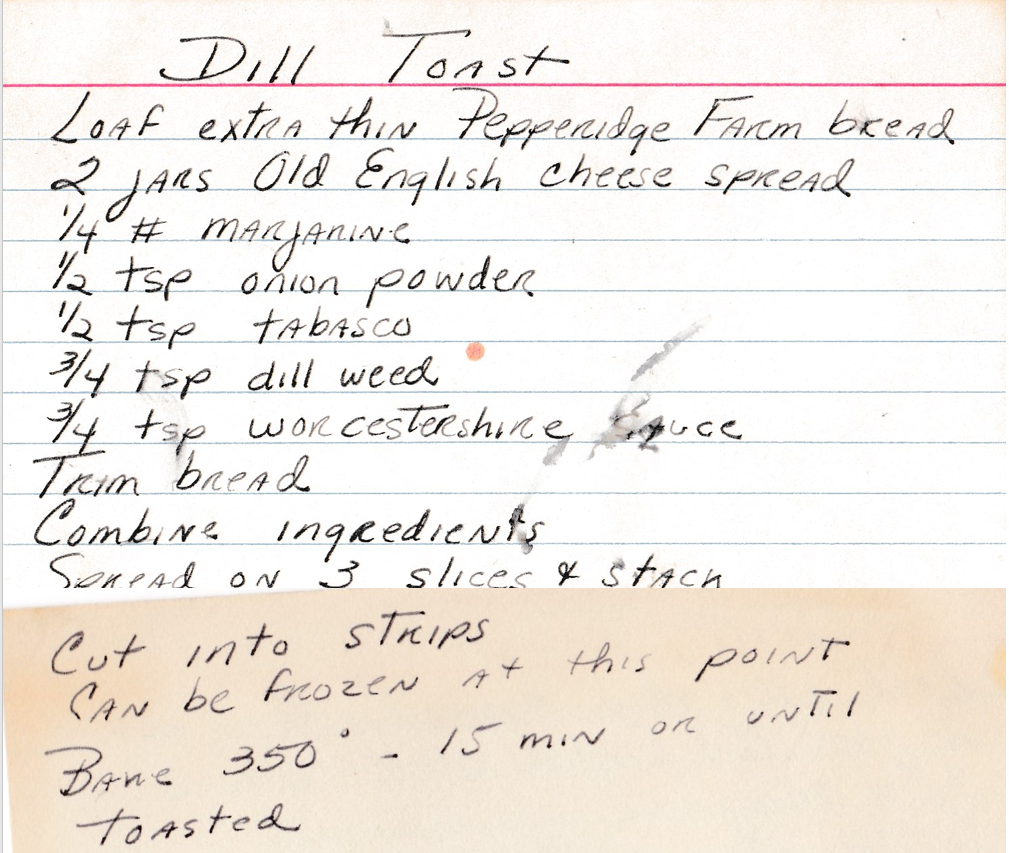 Dill Toast
Loaf extra thin Pepperidge Farm bread
2 jars Old English cheese spread
1/4 # marjarine
1/2 tsp onion powder
1/2 tsp tabasco
3/4 tsp dill weed
3/4 tsp worcestershire sauce
Trim bread
Combine ingredients
Spread on 3 slices & stack
Cut into strips
Can be frozen at this point
Bake 350° - 15 min or until
toasted